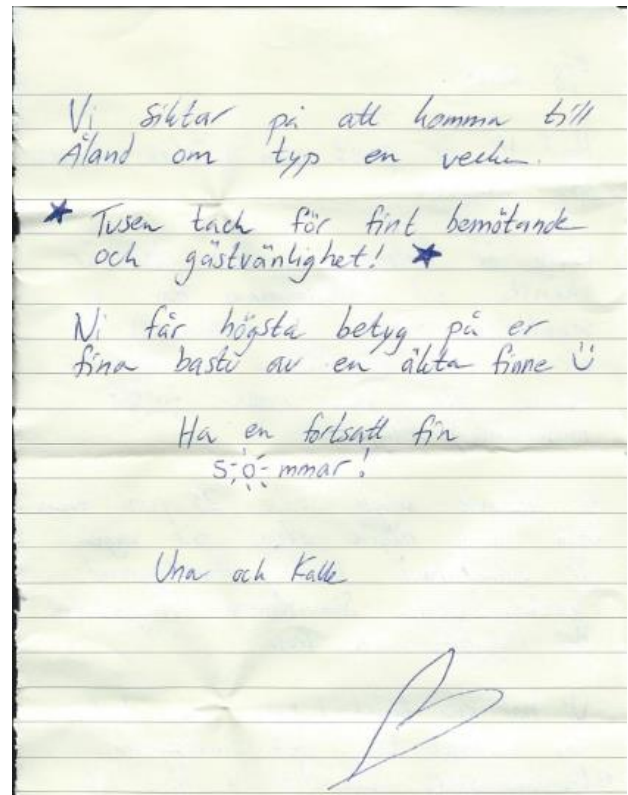 Vi siktar på att komma till
Åland om typ en vecka.
★ Tusen tack för fint bemötande
och gästvänlighet! ★
Ni får högsta betyg på er
fina bastu av en äkta finne ☺
Ha en fortsatt fin
sommar!
Una och Kalle